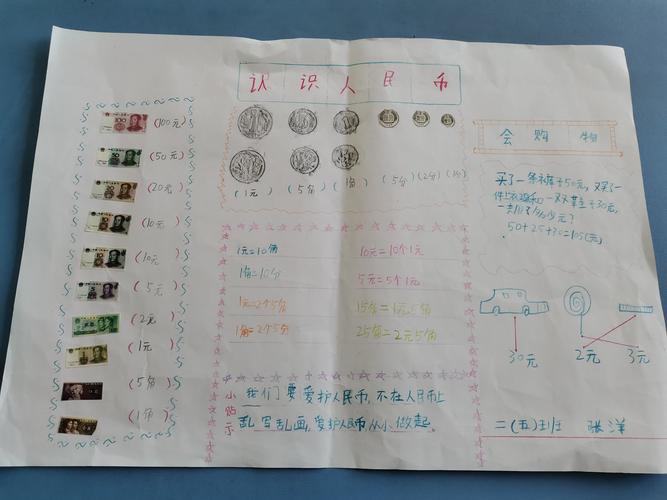 认识人民币
(100元)
(50元)
(20元)
(10元)
(10元)
(5元)
(2元)
(1元)
(5角)
(1角)
(1元) (5角) (1角) (5分) (2分) (1分)
1元=10角
1角=10分
1元=2个5角
1角=2个5分
10元=10个1元
5元=5个1元
15角=1元5角
25角=2元5角
小贴示
我们要爱护人民币,不在人民币上
乱写乱画,爱护人民币从小做起。
会购物
买了一条裤子50元,又买了一
件上衣25和一双鞋子30元,
一共用了多少元?
50+25+30=105(元)
30元 2元 3元
二(五)班 张洋